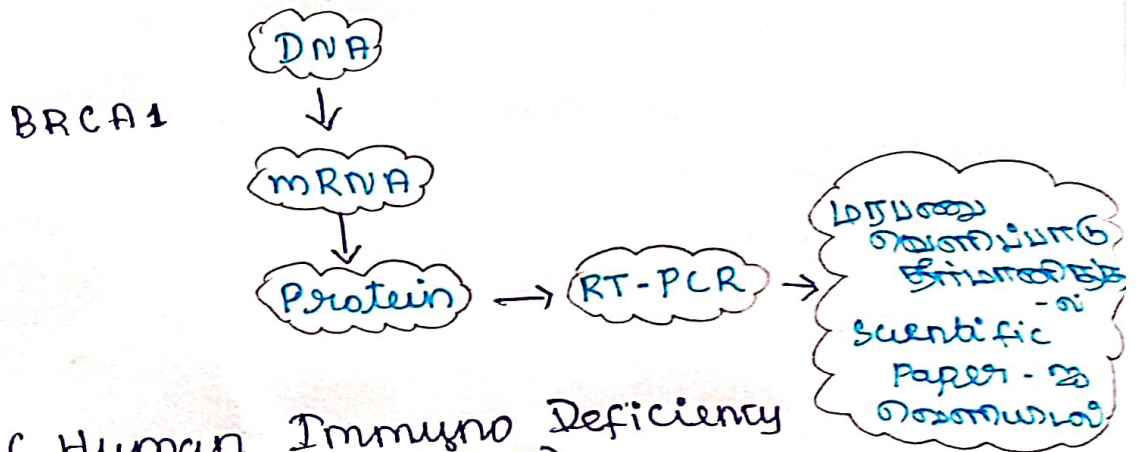 DNA
BRCA1
mRNA
Protein → RT-PCR →
மரபணு
வெளிப்பாடு
தீர்மானித்த
-ல்
Scientific
Paper -
வெளியிடல்
Human Immuno Deficiency